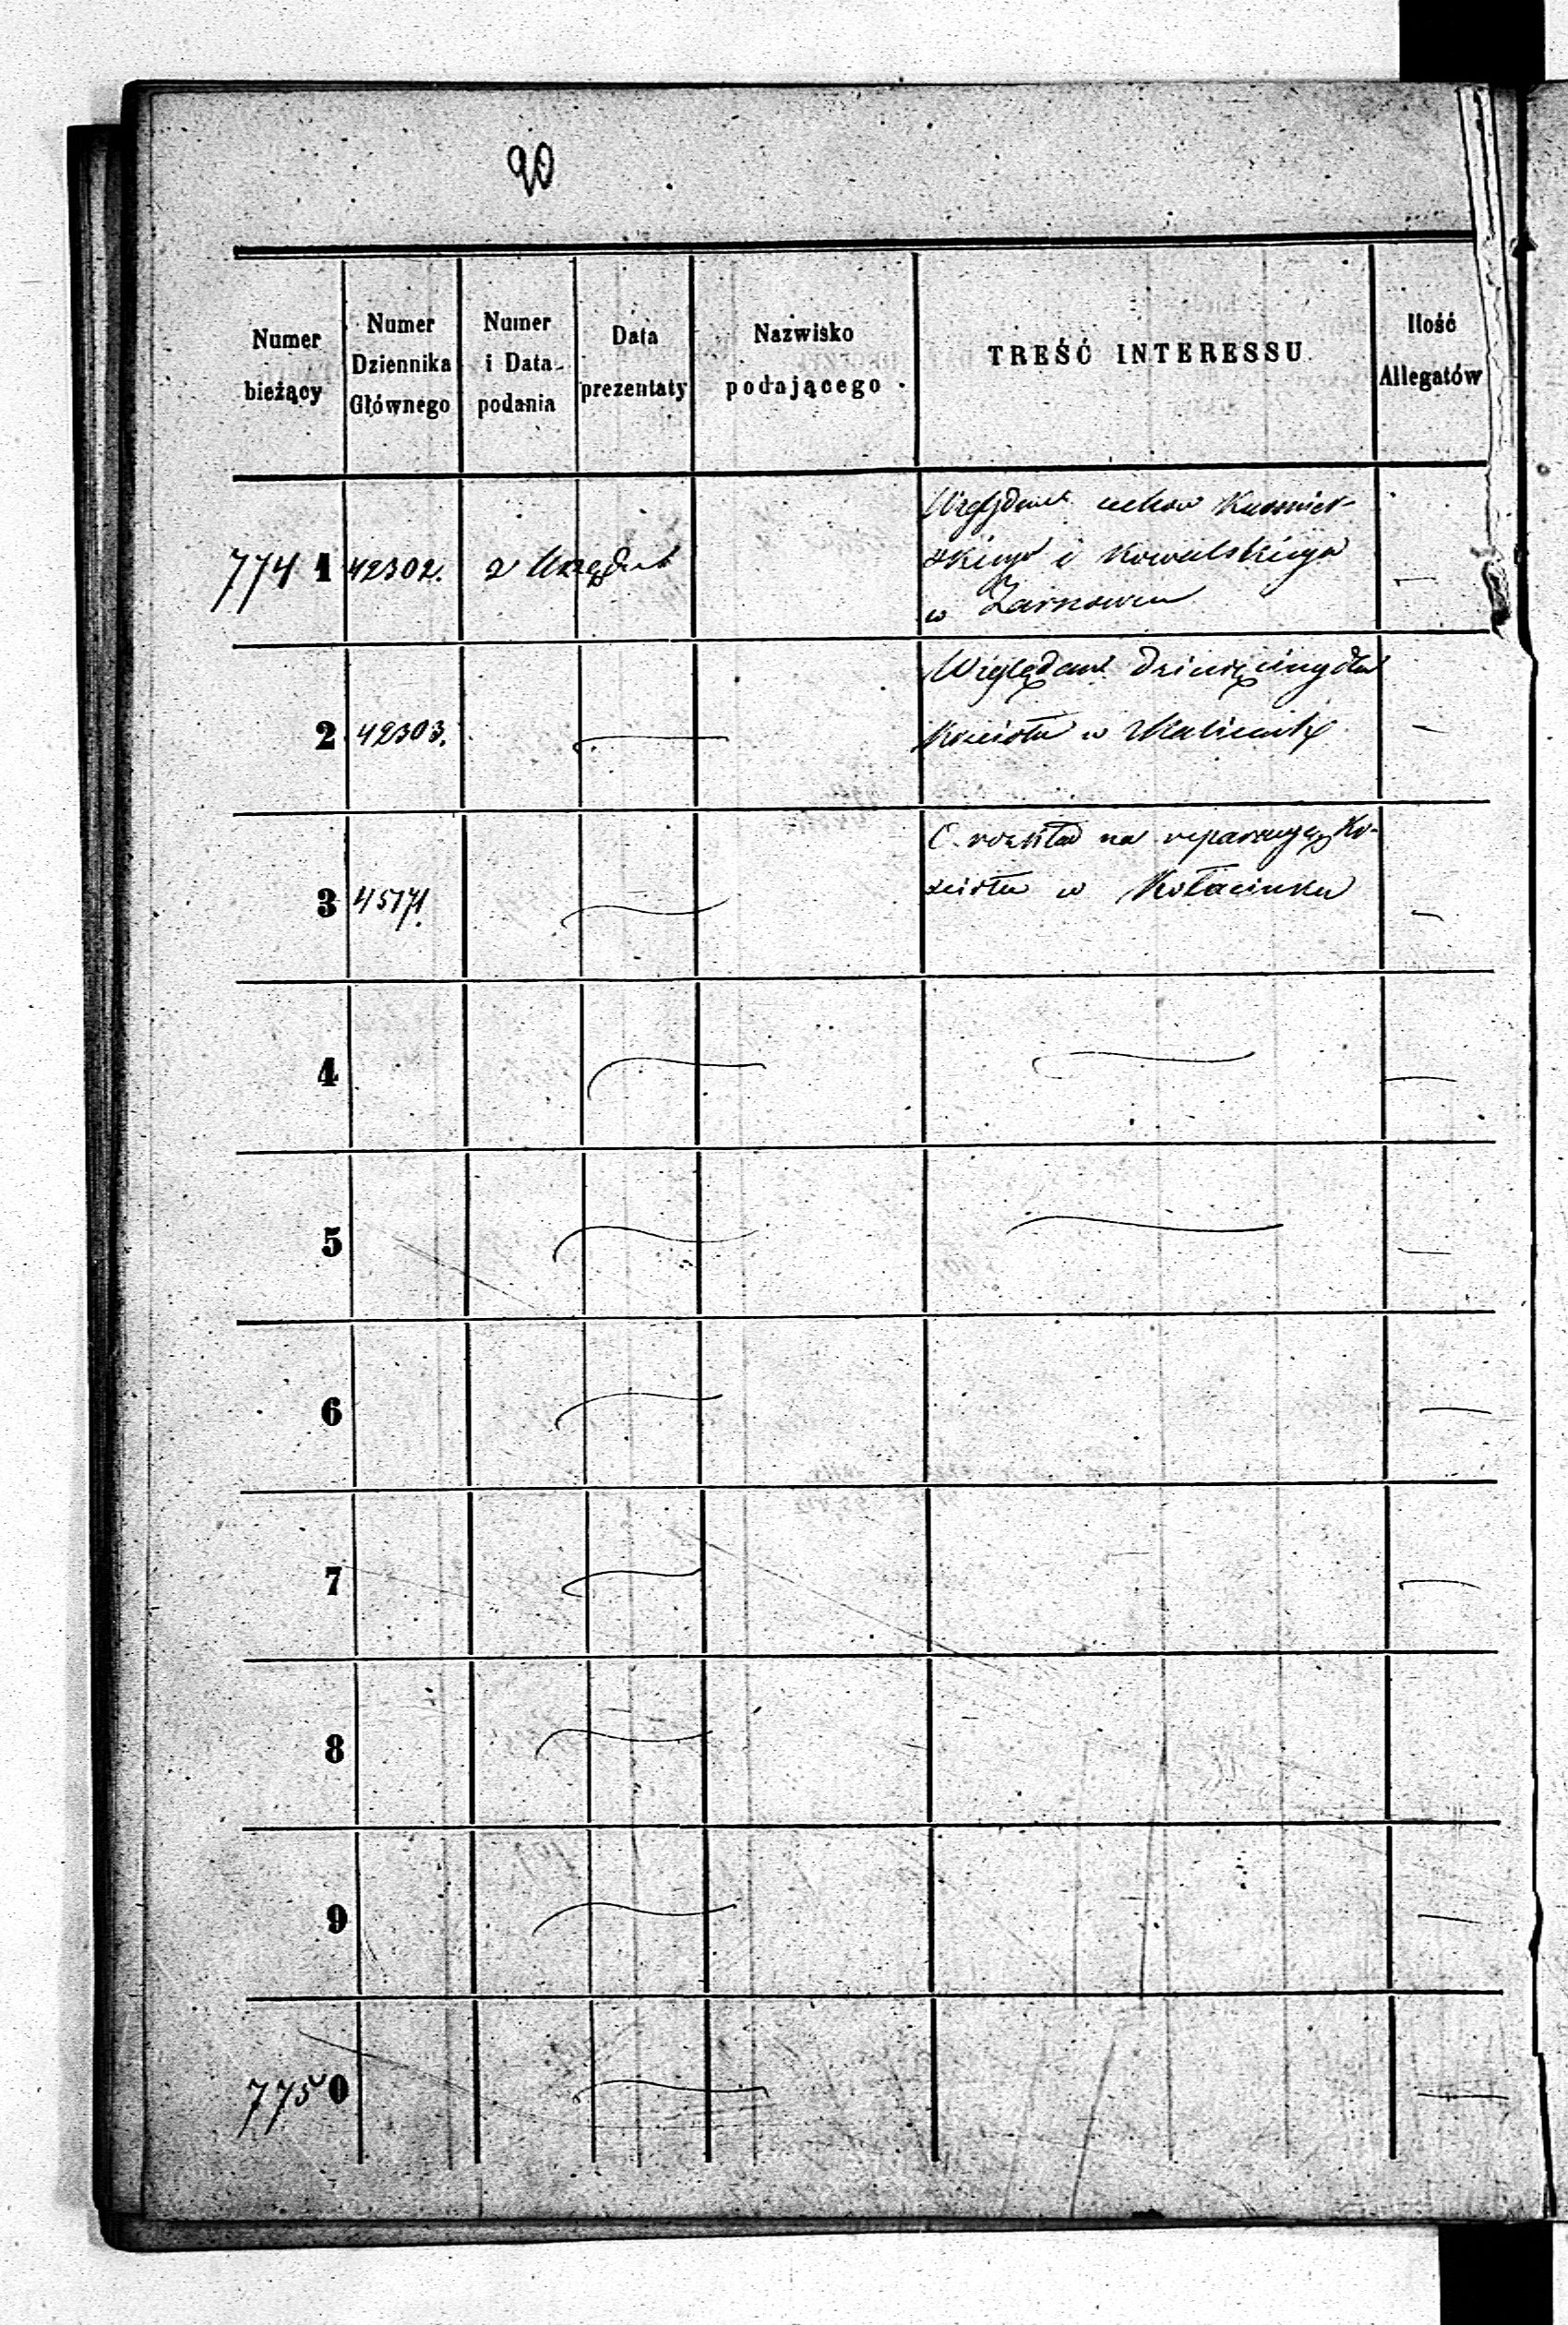 90
Numer bieżący
Numer Dziennika Głównego
Numer i Data podania
Data prezentaty
Nazwisko podającego
TREŚĆ INTERESSU
Ilość Allegatów
7741 42302. z Urzędu Względem cechów Kuśnier-
skiego i Kowalskiego
w Żarnowie
2 42303. Względem dziesięciny dla
Kościoła w
3 45171. O rozkład na reparacyę Ko-
ścioła w Kołacinku
4
5
6
7
8
9
7750